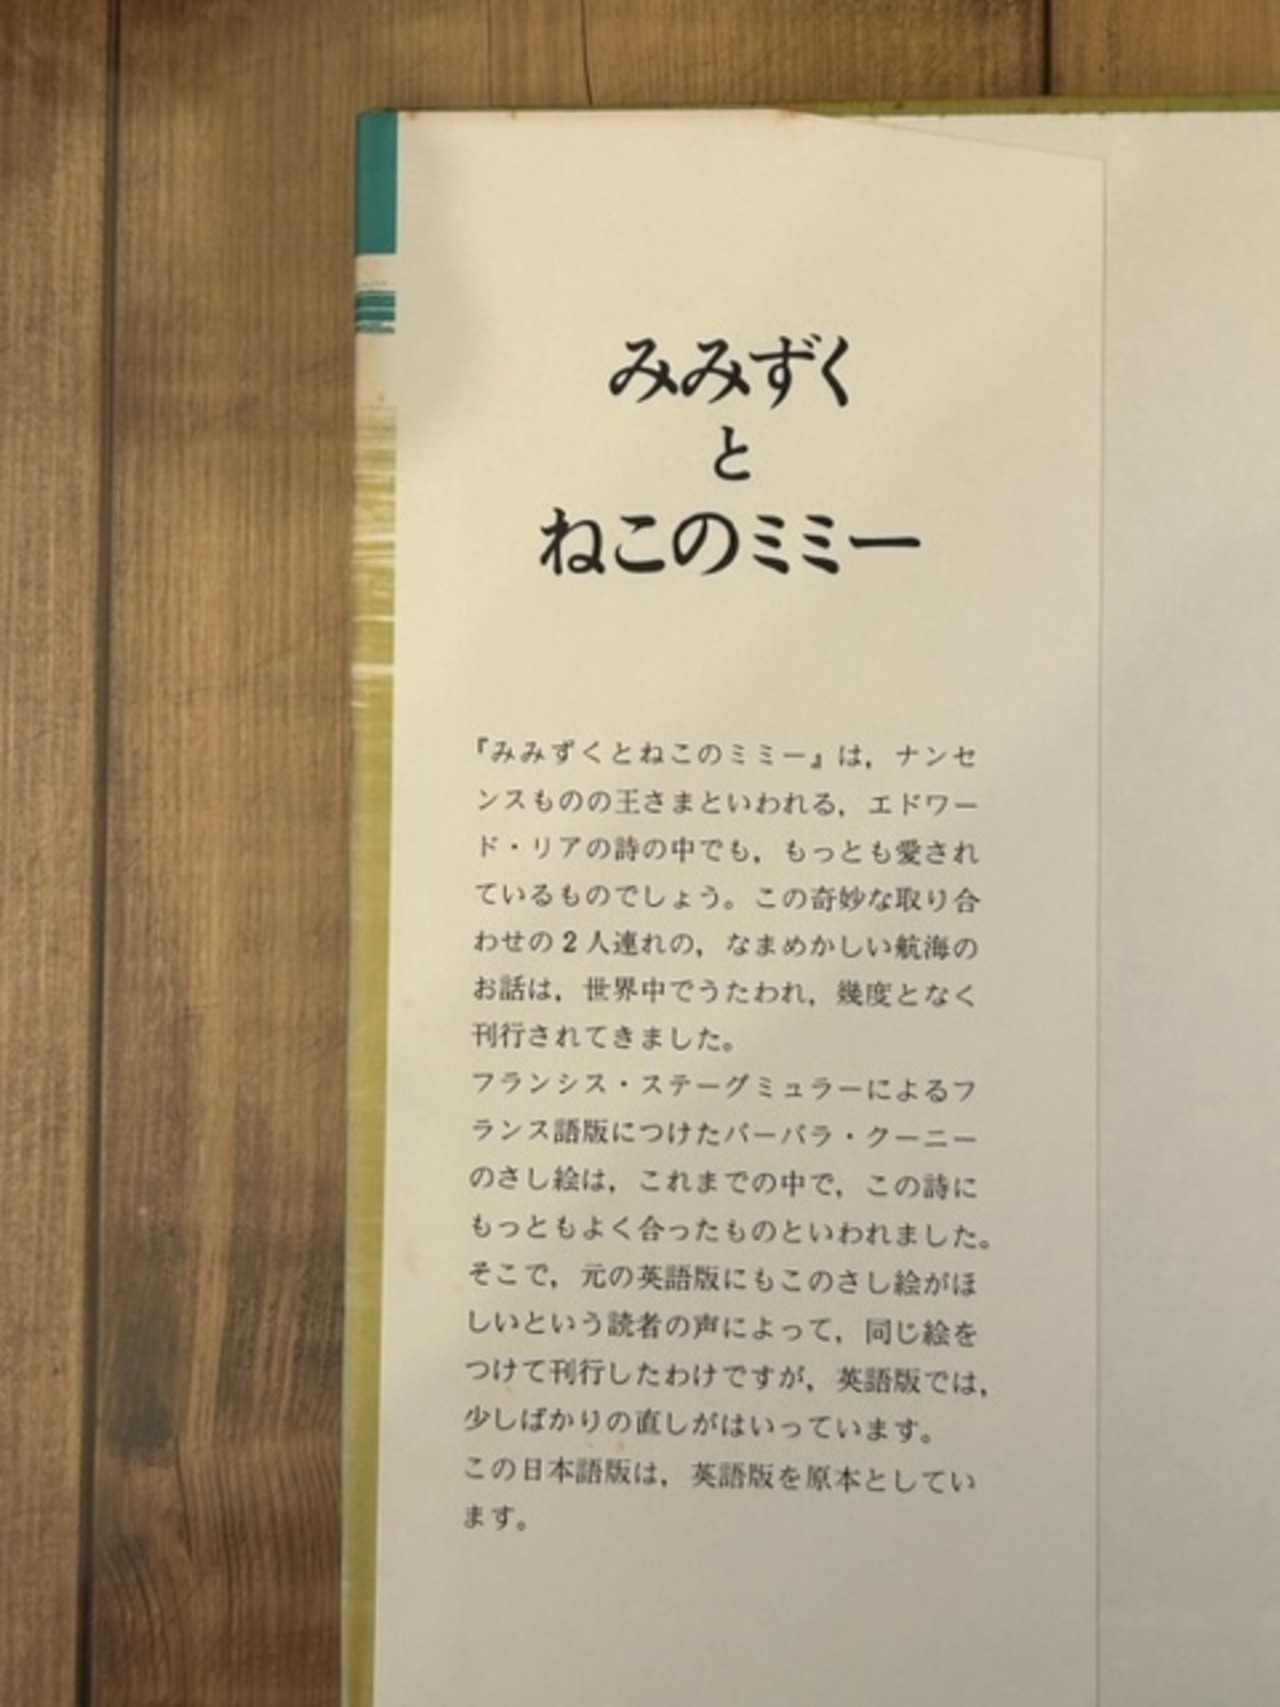 みみずく
と
ねこのミミー
『みみずくとねこのミミー』は，ナンセ
ンスものの王さまといわれる，エドワー
ド・リアの詩の中でも，もっとも愛され
ているものでしょう。この奇妙な取り合
わせの2人連れの，なまめかしい航海の
お話は，世界中でうたわれ，幾度となく
刊行されてきました。
フランシス・ステーグミュラーによるフ
ランス語版につけたバーバラ・クーニー
のさし絵は，これまでの中で，この詩に
もっともよく合ったものといわれました。
そこで，元の英語版にもこのさし絵がほ
しいという読者の声によって，同じ絵を
つけて刊行したわけですが，英語版では，
少しばかりの直しがはいっています。
この日本語版は，英語版を原本としてい
ます。